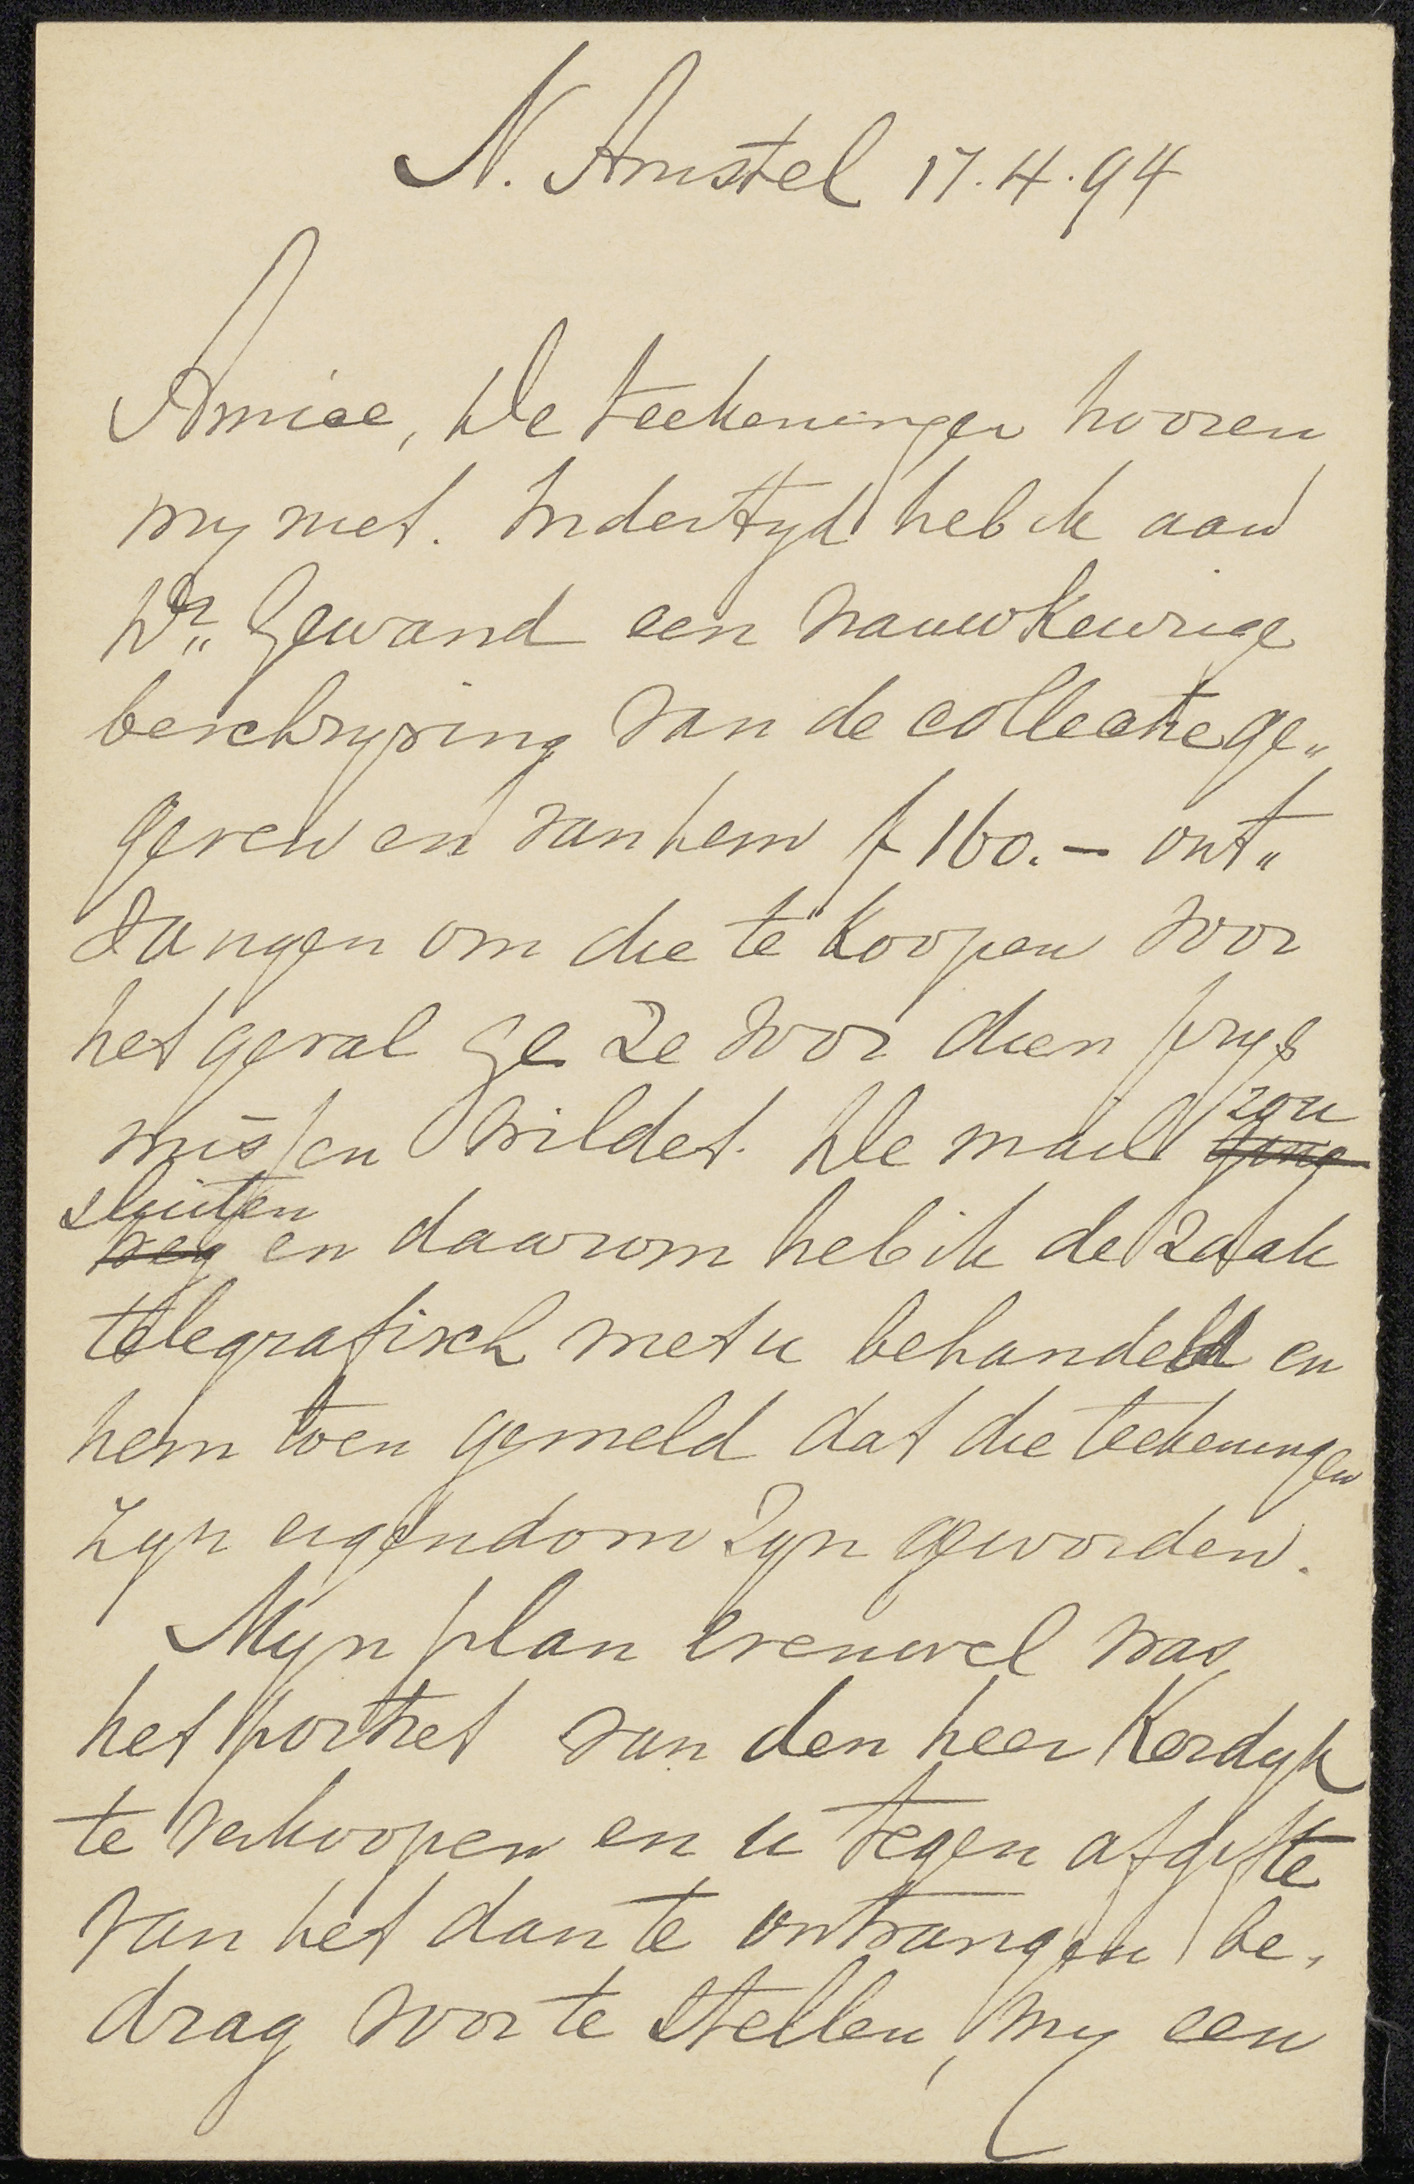 N. Amstel 17.4.94
Amice, De teekeningen hooren
my niet. Indertyd heb ik aan
Dr. Gewand een nauwkeurige
beschryving van de collectie ge„
geven en van hem f 160.- ont„
vangen om die te koopen voor
het geval ge ze voor dien prys
missen wildet. De mail zou ging
sluiten weg en daarom heb ik de zaak
telegrafisch met u behandeld en
hem toen gemeld dat die teekeningen
zyn eigendom zyn geworden.
Myn plan evenwel was
het portret van den heer Kerdyk
te verkoopen en u tegen afgifte
van het dan te ontvangen be„
drag voor te stellen, my een